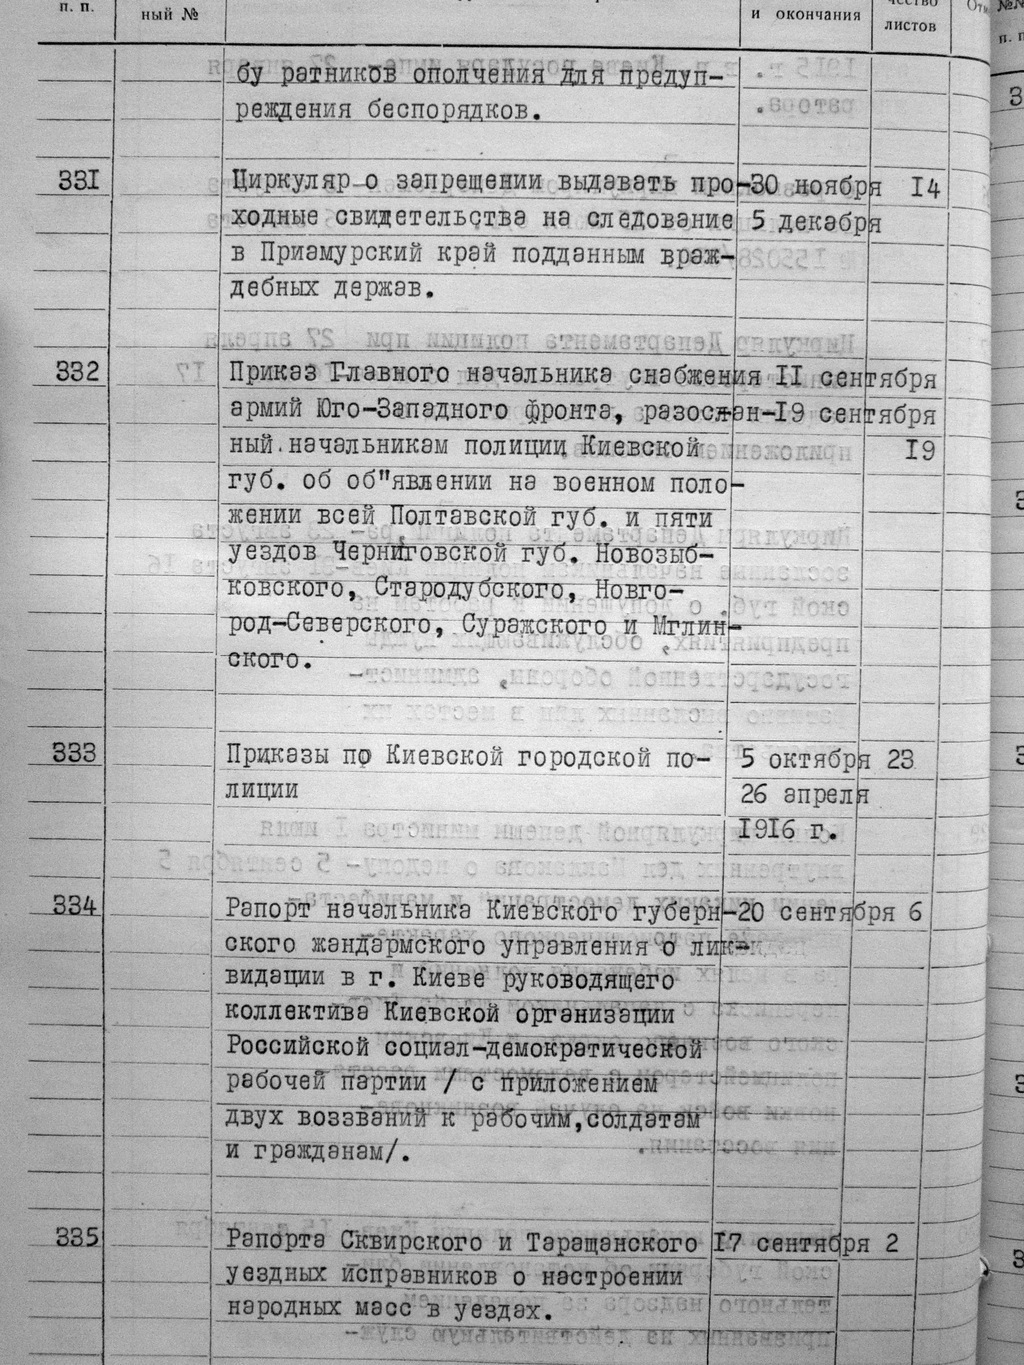 п. п.
ный №
и окончания
листов
бу ратников ополчения для предуп-
реждения беспорядков.
331 Циркуляр о запрещении выдавать про- 30 ноября 14
ходные свидетельства на следование 5 декабря
в Приамурский край подданным враж-
дебных держав.
332 Приказ Главного начальника снабжения 11 сентября
армий Юго-Западного фронта, разослан- 19 сентября
ный начальникам полиции Киевской 19
губ. об об"явлении на военном поло-
жении всей Полтавской губ. и пяти
уездов Черниговской губ. Новозыб-
ковского, Стародубского, Новго-
род-Северского, Суражского и Мглин-
ского.
333 Приказы по Киевской городской по- 5 октября 23
лиции 26 апреля
1916 г.
334 Рапорт начальника Киевского губерн- 20 сентября 6
ского жандармского управления о лик-
видации в г. Киеве руководящего
коллектива Киевской организации
Российской социал-демократической
рабочей партии / с приложением
двух воззваний к рабочим,солдатам
и гражданам/.
335 Рапорта Сквирского и Таращанского 17 сентября 2
уездных исправников о настроении
народных масс в уездах.